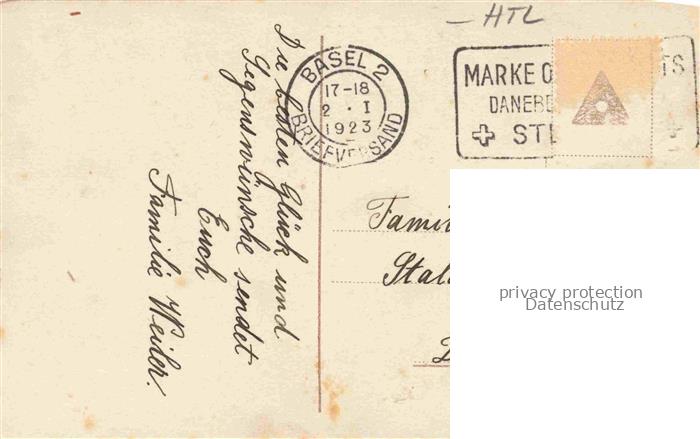 HTL
BASEL 2
17-18
2 · I
1923
BRIEFVERSAND
MARKE O TS
DANEBE
+ STE +
Die besten Glück und
Segenswünsche sendet
Euch
Familie Weiler.
Famil
Stal
privacy protection
Datenschutz